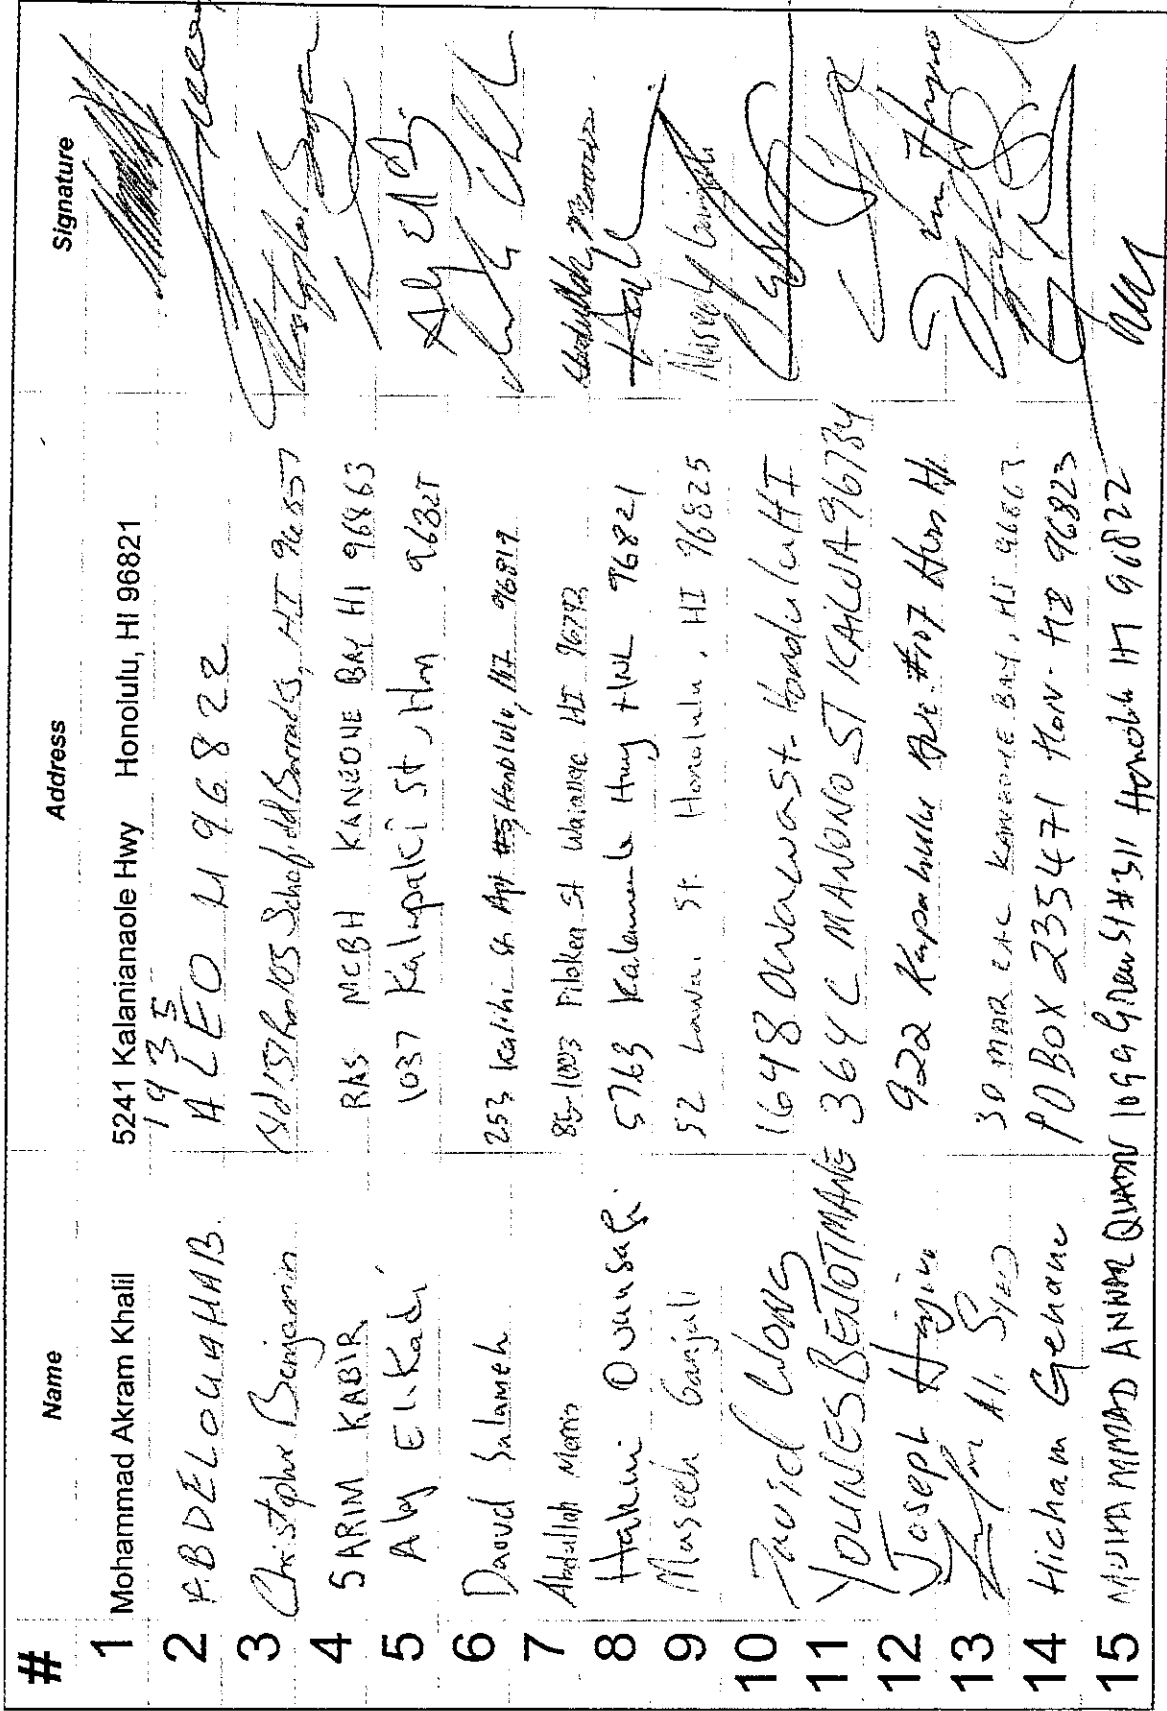 # Name Address Signature
1 Mohammad Akram Khalil 5241 Kalanianaole Hwy Honolulu, HI 96821
1935
2 ABDELOUAHAB. ALEO H 96822
3 Christopher Benjamin Schofield Barracks, HI 96857
4 SARIM KABIR RAS MCBH KANEOHE BAY HI 96863
5 Aly El-Kadi 1037 Kalapaki St, Hon 96825 Aly El
6 Daoud Salameh 253 Kalihi St Apt Honolulu, HI 96819
7 Abdullah Morris Piloken St Waianae HI 96792 Abdullah Morris
8 Hakim Ouansafi 5763 Kalanianaole Hwy HNL 96821
9 Maseeh Ganjali 52 Lawai St. Honolulu, HI 96825 Maseeh Ganjali
10 David Wong 1648 Owawa St. Honolulu HI
11 YOUNES BENTOTMANE 364 C MANONO ST KAILUA 96734
12 Joseph Hanjiro 922 Kapahulu Ave #107 Hon HI
13 Ali Syed KANEOHE BAY, HI 96863
14 Hicham Gehane PO BOX 235471 HON - HI 96823
15 MUHAMMAD ANWAR 1099 Green St #311 Honolulu HI 96822